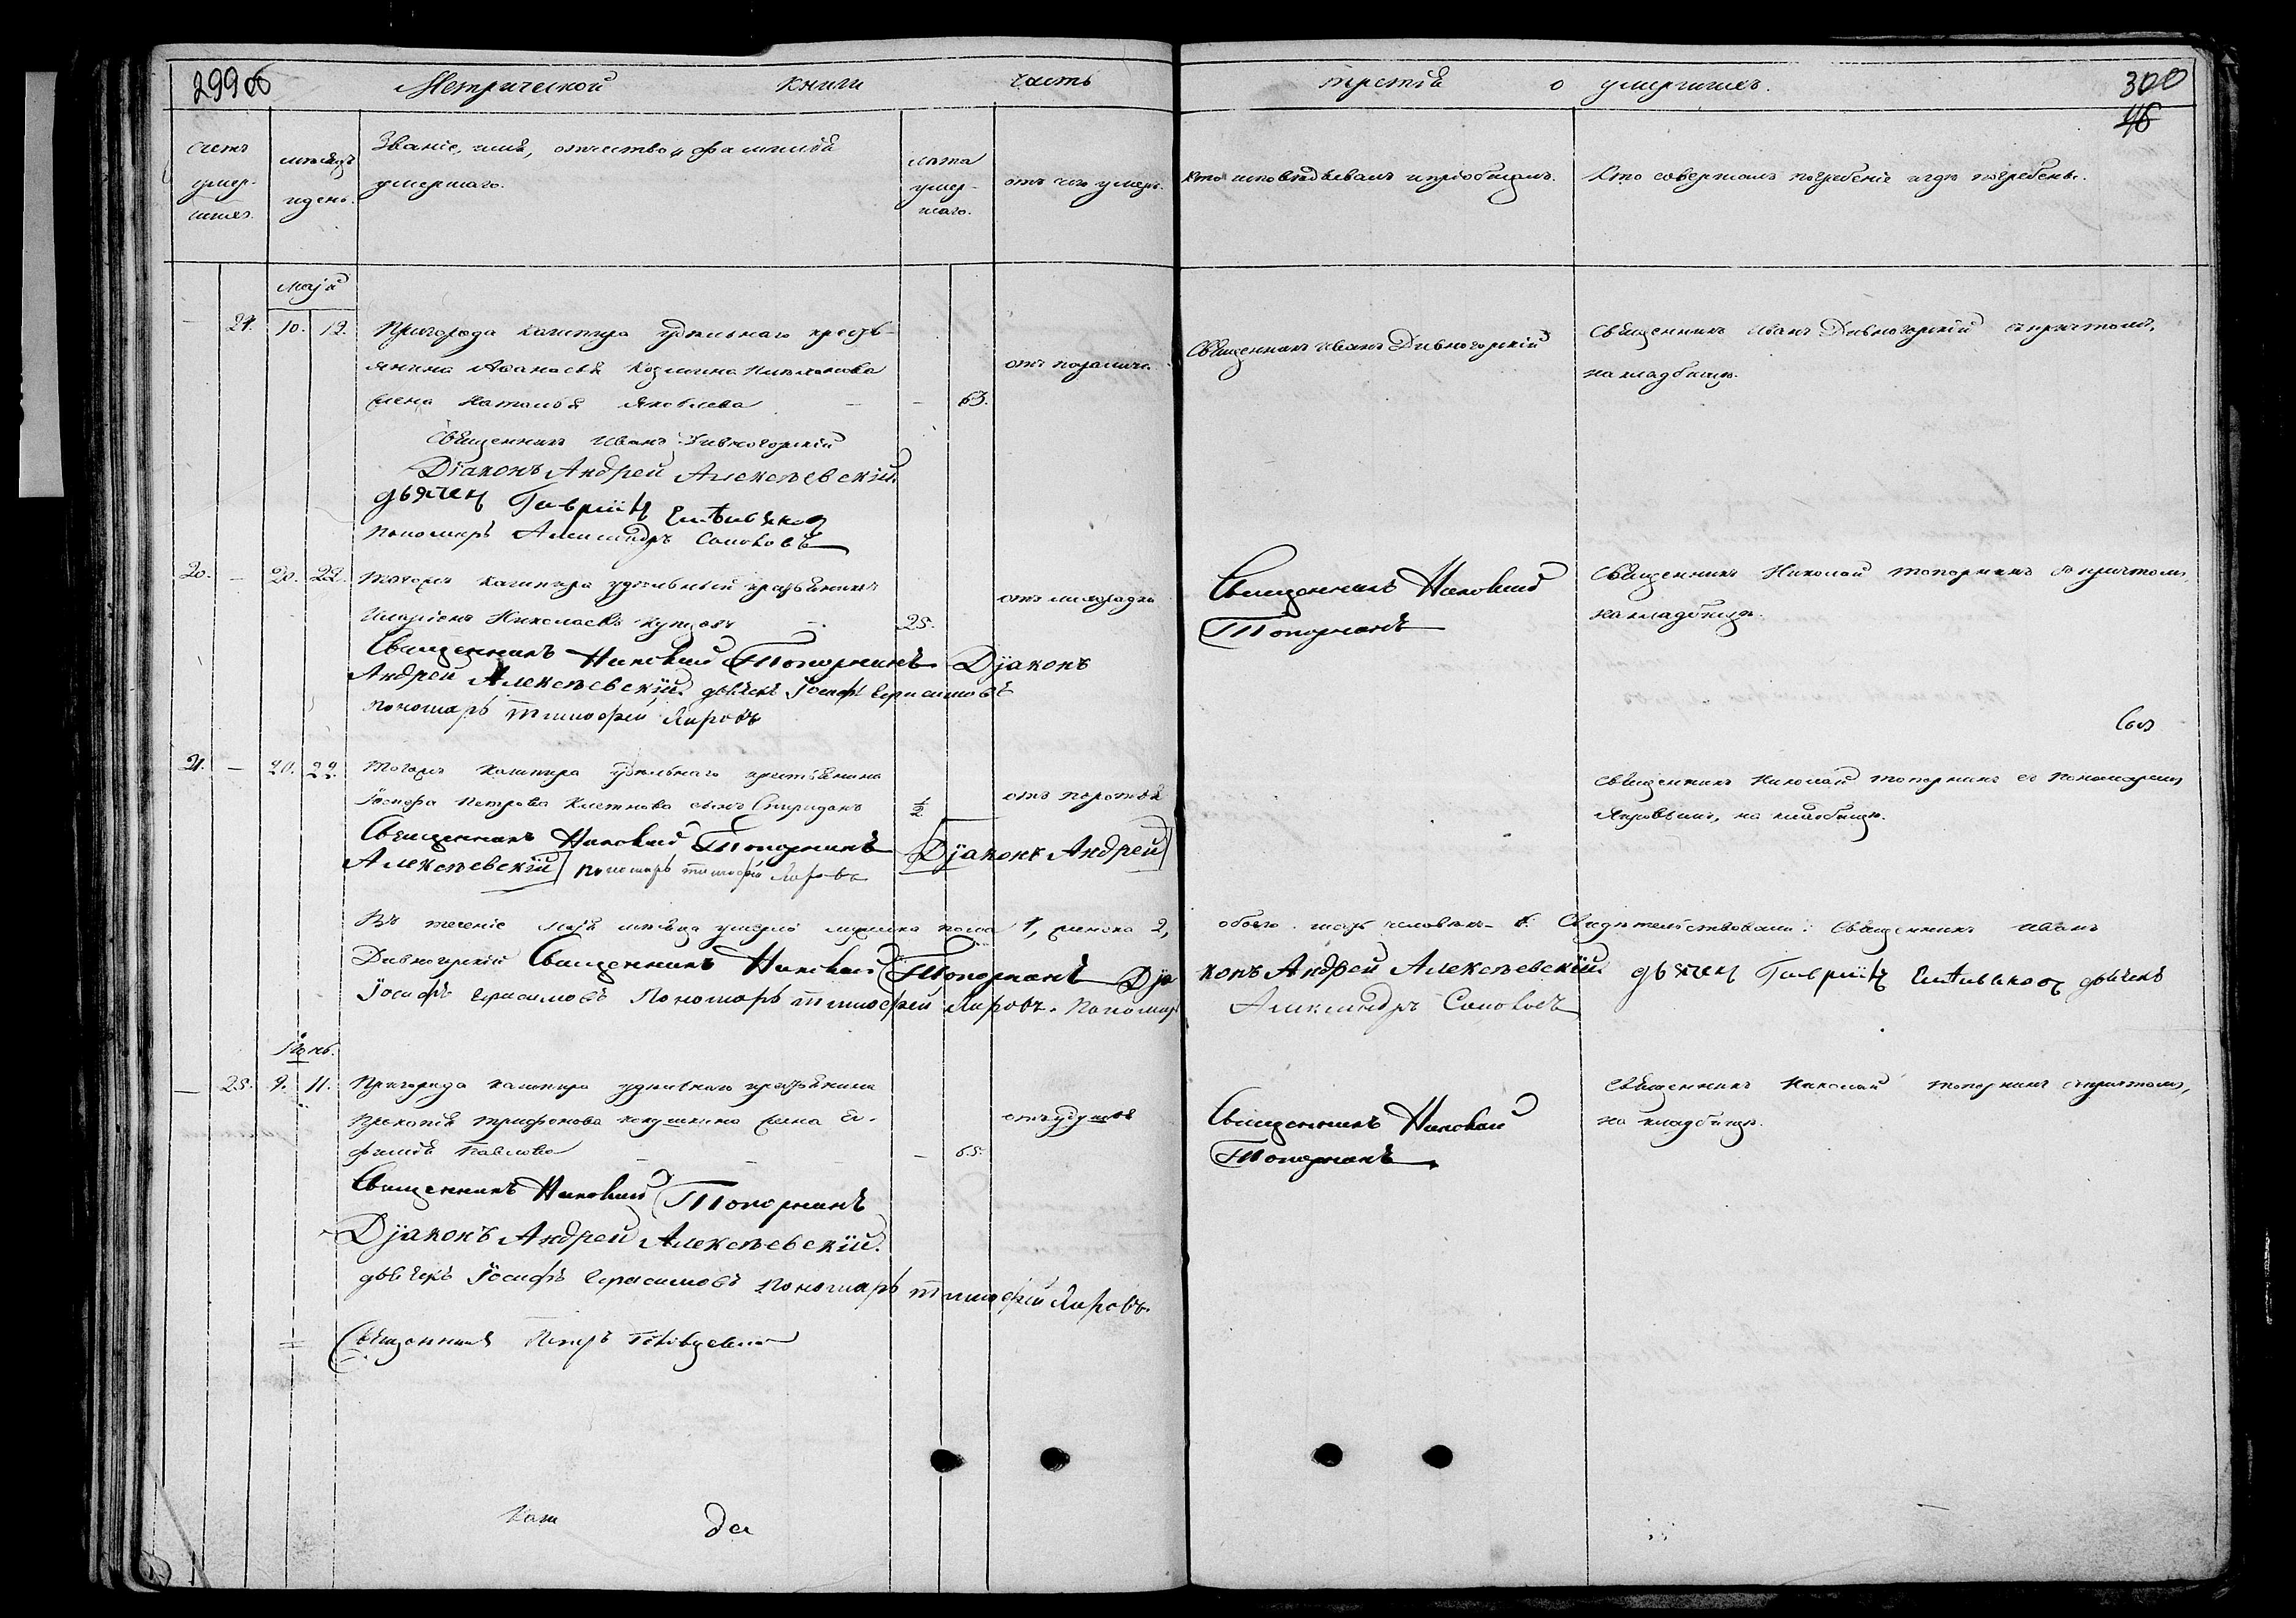 299 об
Метрической книги часть третія о умершихъ. 300
46
Счетъ умер-шихъ.
мѣсяцъ и день.
Званіе, имя, отчество и фамилія умершаго.
лѣта умер-шаго.
отъ чего умеръ.
Кто исповѣдывалъ и пріобщалъ.
Кто совершалъ погребеніе и гдѣ погребены.
маія
24. 10. 12. Пригорода Кашпира удѣльнаго кресть-
янина Аѳанасья Козмина
жена Наталья Яковлева — — 63.
отъ паралича.
Священникъ Иванъ Дивногорскій
Священникъ Иванъ Дивногорскій съ причтомъ,
на кладбищѣ.
Священникъ Иванъ Дивногорскій
Діаконъ Андрей Алексѣевскій
дьячек Гавриил
пономарь Александръ Соколовъ
20. — 20. 22. Тогожъ Кашпира удѣльный крестьянинъ
Иларіонъ Николаевъ Купцовъ — 25.
отъ лихорадки
Священникъ Николай
Топорнинъ
Священникъ Николай Топорнинъ съ причтомъ,
на кладбищѣ.
Священникъ Николай Топорнинъ Діаконъ
Андрей Алексѣевскій дьячекъ Іосифъ Герасимовъ
пономарь Тимофей Яировъ
21. — 20. 22. Тогожъ Кашпира удѣльнаго крестьянина
Іосифа Петрова сынъ Спиридонъ 1/2
отъ
Священникъ Николай Топорнинъ съ пономаремъ
Яировымъ, на кладбищѣ.
Священникъ Николай Топорнинъ Діаконъ Андрей
Алексѣевскій пономарь Тимофей Яировъ
Въ теченіе маія мѣсяца умерло мужеска пола 4, женска 2, обоего шесть человѣкъ 6. Свидѣтельствовали: Священникъ Иванъ
Дивногорскій Священникъ Николай Топорнинъ Діаконъ Андрей Алексѣевскій дьячек Гавриил дьячекъ
Іосифъ Герасимовъ Пономарь Тимофей Яировъ. Пономарь Александръ Соколовъ
Іюнь.
— 25. 9. 11. Пригорода Кашпира удѣльнаго крестьянина
Прокопія Трифонова жена Ев-
фимія Павлова — 65.
отъ удушья
Священникъ Николай
Топорнинъ
Священникъ Николай Топорнинъ съ причтомъ,
на кладбищѣ.
Священникъ Николай Топорнинъ
Діаконъ Андрей Алексѣевскій.
дьячекъ Іосифъ Герасимовъ пономарь Тимофей Яировъ.
Священникъ Петръ